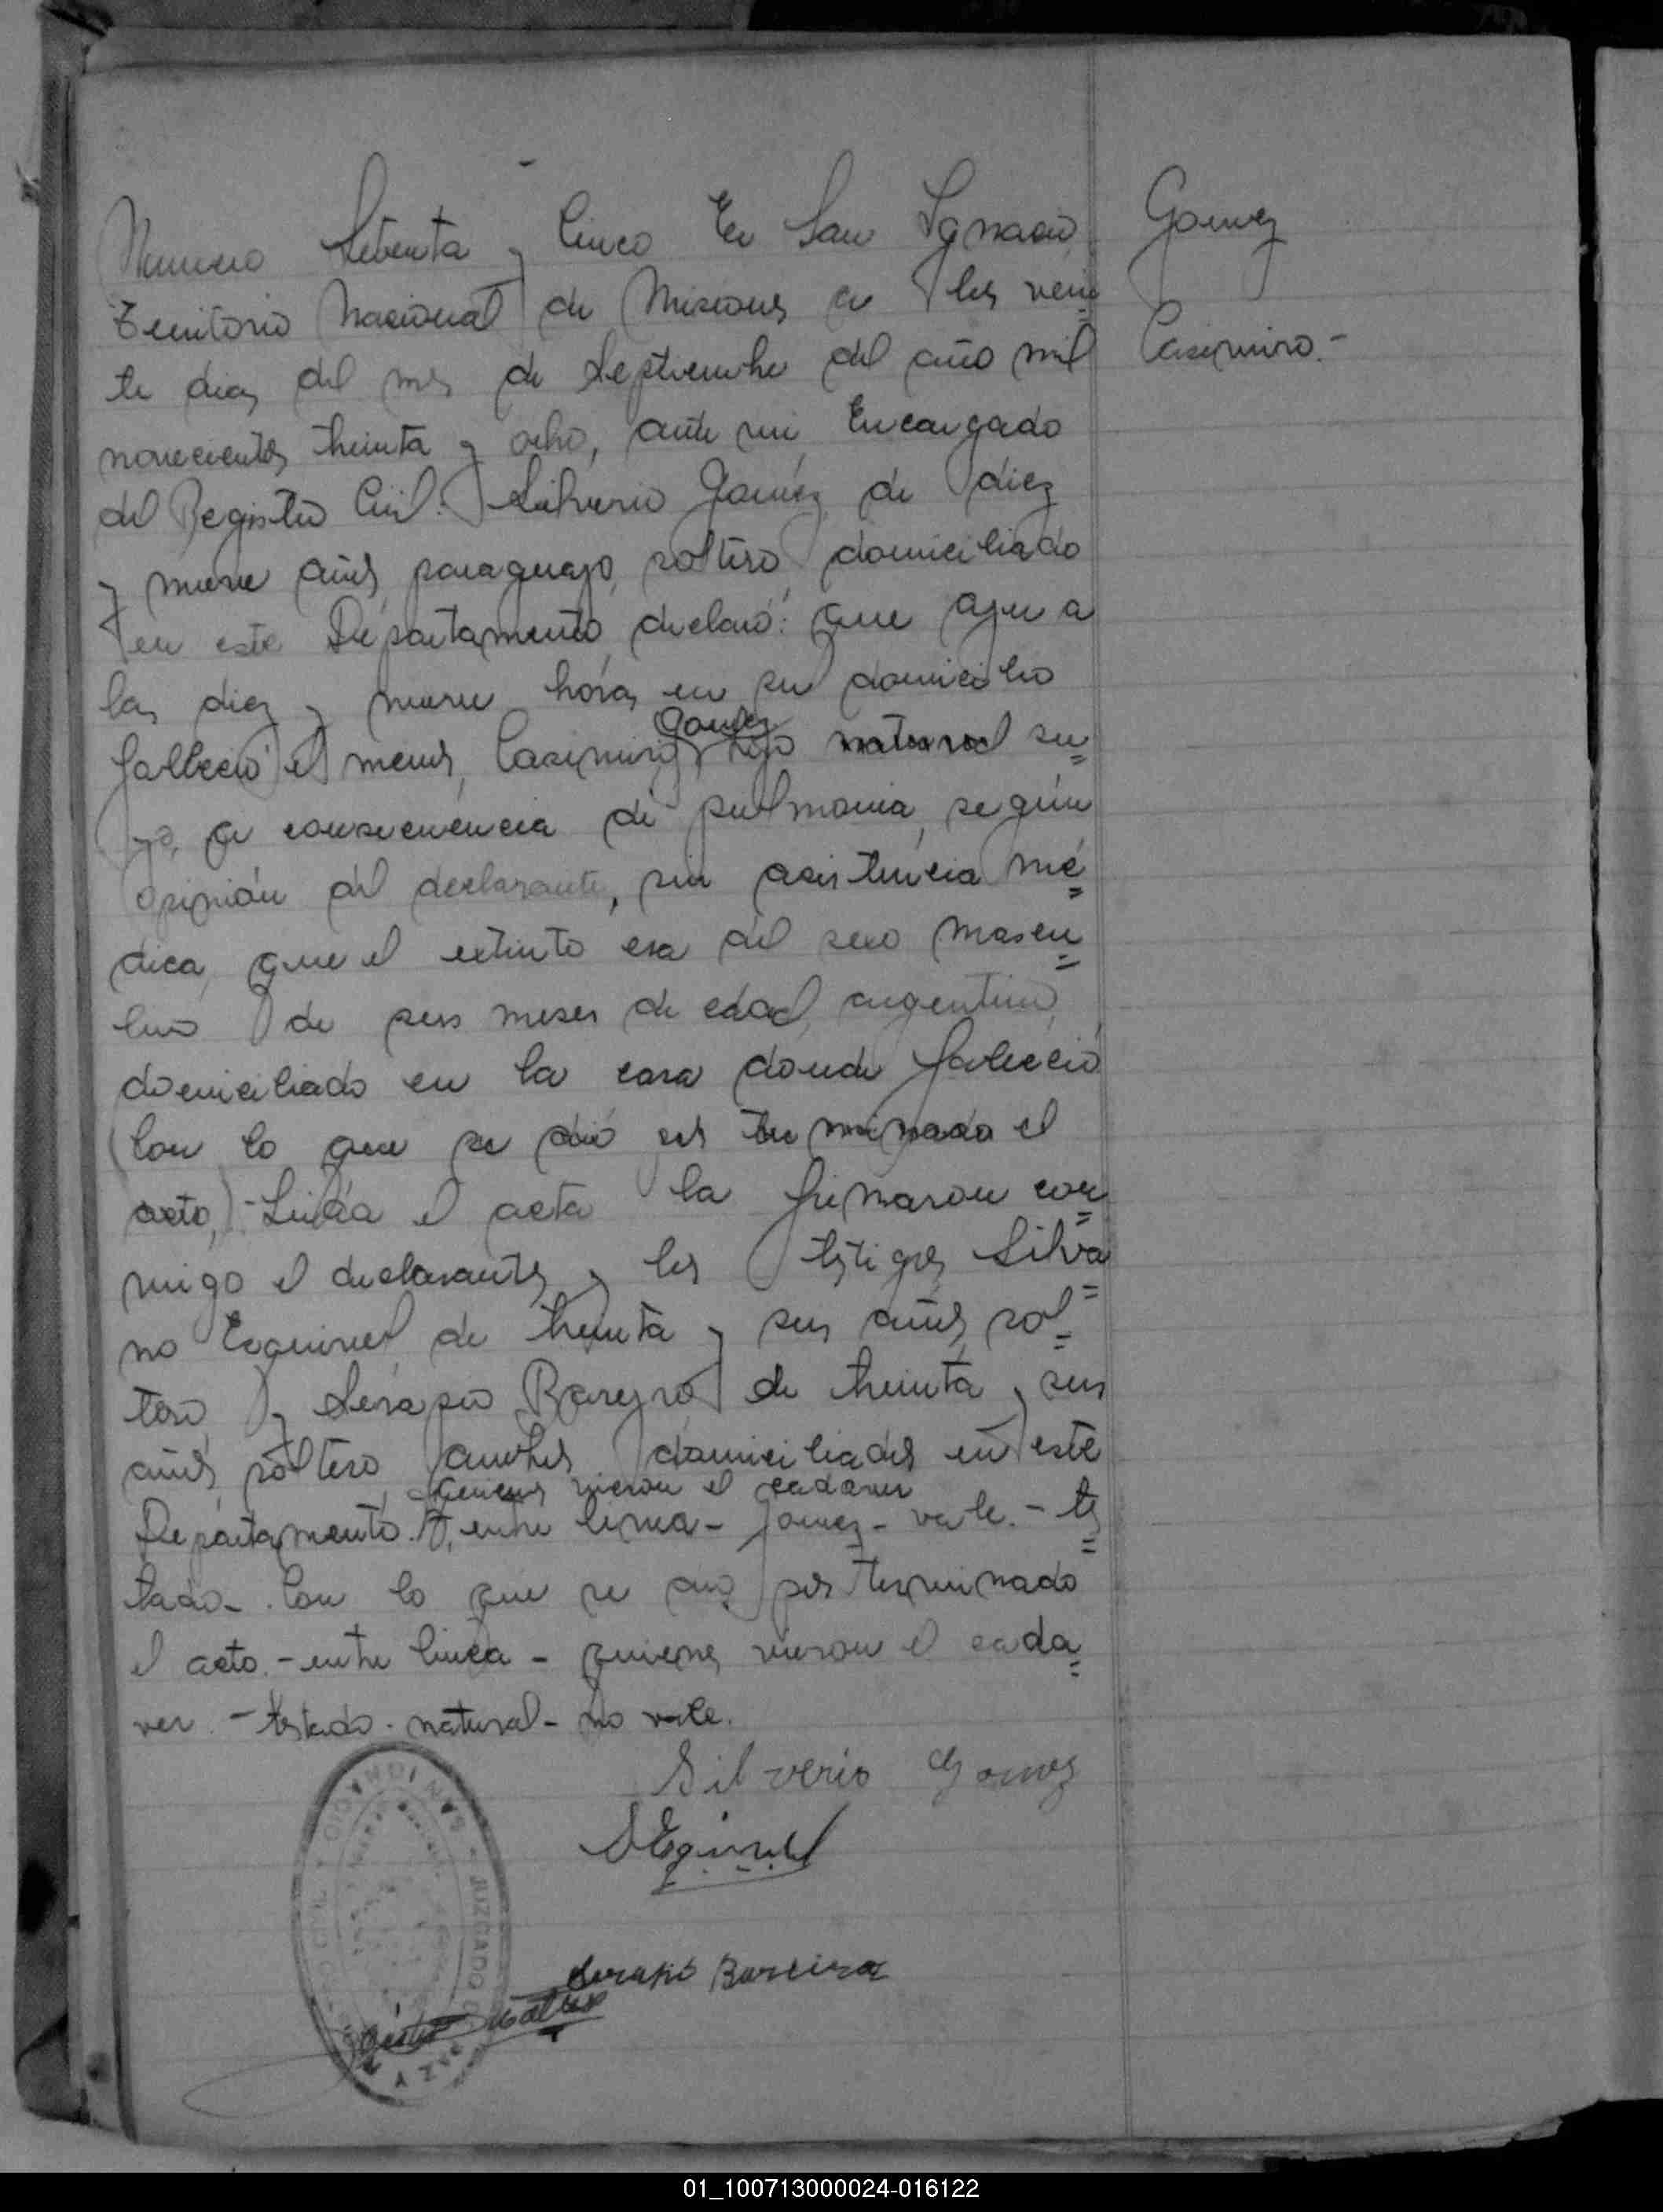 Numero Setenta y Cinco En San Ignacio
Gomez
Territorio Nacional de Misiones a los vein=
Casimiro.-
te dias del mes de Septiembre del año mil
novecientos treinta y ocho, ante mi, Encargado
del Registro Civil: Silverio Gomez, de diez
y nueve años, paraguayo, soltero, domiciliado
en este Departamento, declaró: que ayer a
las diez y nueve horas en su domicilio
Gomez
falleció el menor, Casimiro, hijo natural su=
yo, a consecuencia de pulmonia, según
opinión del declarante, sin asistencia mé=
dica, que el extinto era del sexo mascu=
lino de seis meses de edad, argentino,
domiciliado en la casa donde falleció
(Con lo que se dió por terminado el
acto,)-Leida el acta la firmaron con=
migo el declarante y los testigos Silva=
no Esquivel de treinta y seis años, sol=
tero, y Serapio Bareyro de treinta y seis
años, soltero, ambos domiciliados en este
quienes vieron el cadaver
Departamento. entre linea- Gomez- vale.- tes=
tado- Con lo que se dio por terminado
el acto.-entre linea- quienes vieron el cada=
ver.-testado-natural-No vale.
Silverio Gomez
SEquivel
Serapio Bareira
SAN IGNACIO
JUZGADO